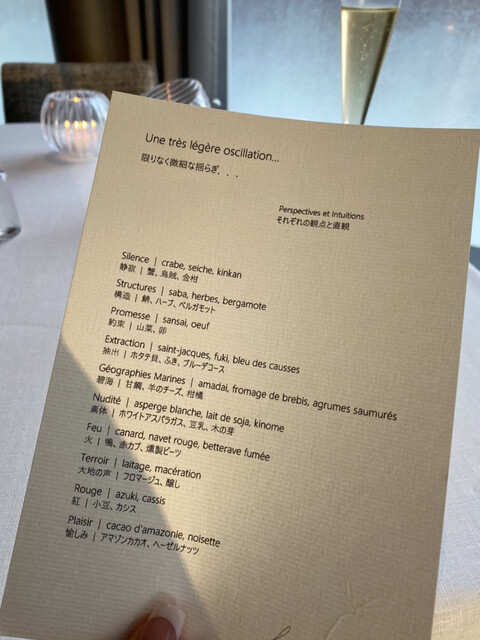 Une très légère oscillation...
限りなく微細な揺らぎ．．．
Perspectives et Intuitions
それぞれの観点と直観
Silence | crabe, seiche, kinkan
静寂 | 蟹、烏賊、金柑
Structures | saba, herbes, bergamote
構造 | 鯖、ハーブ、ベルガモット
Promesse | sansai, oeuf
約束 | 山菜、卵
Extraction | saint-jacques, fuki, bleu des causses
抽出 | ホタテ貝、ふき、ブルーデコース
Géographies Marines | amadai, fromage de brebis, agrumes saumurés
碧海 | 甘鯛、羊のチーズ、柑橘
Nudité | asperge blanche, lait de soja, kinome
素体 | ホワイトアスパラガス、豆乳、木の芽
Feu | canard, navet rouge, betterave fumée
火 | 鴨、赤カブ、燻製ビーツ
Terroir | laitage, macération
大地の声 | フロマージュ、醸し
Rouge | azuki, cassis
紅 | 小豆、カシス
Plaisir | cacao d'amazonie, noisette
愉しみ | アマゾンカカオ、ヘーゼルナッツ